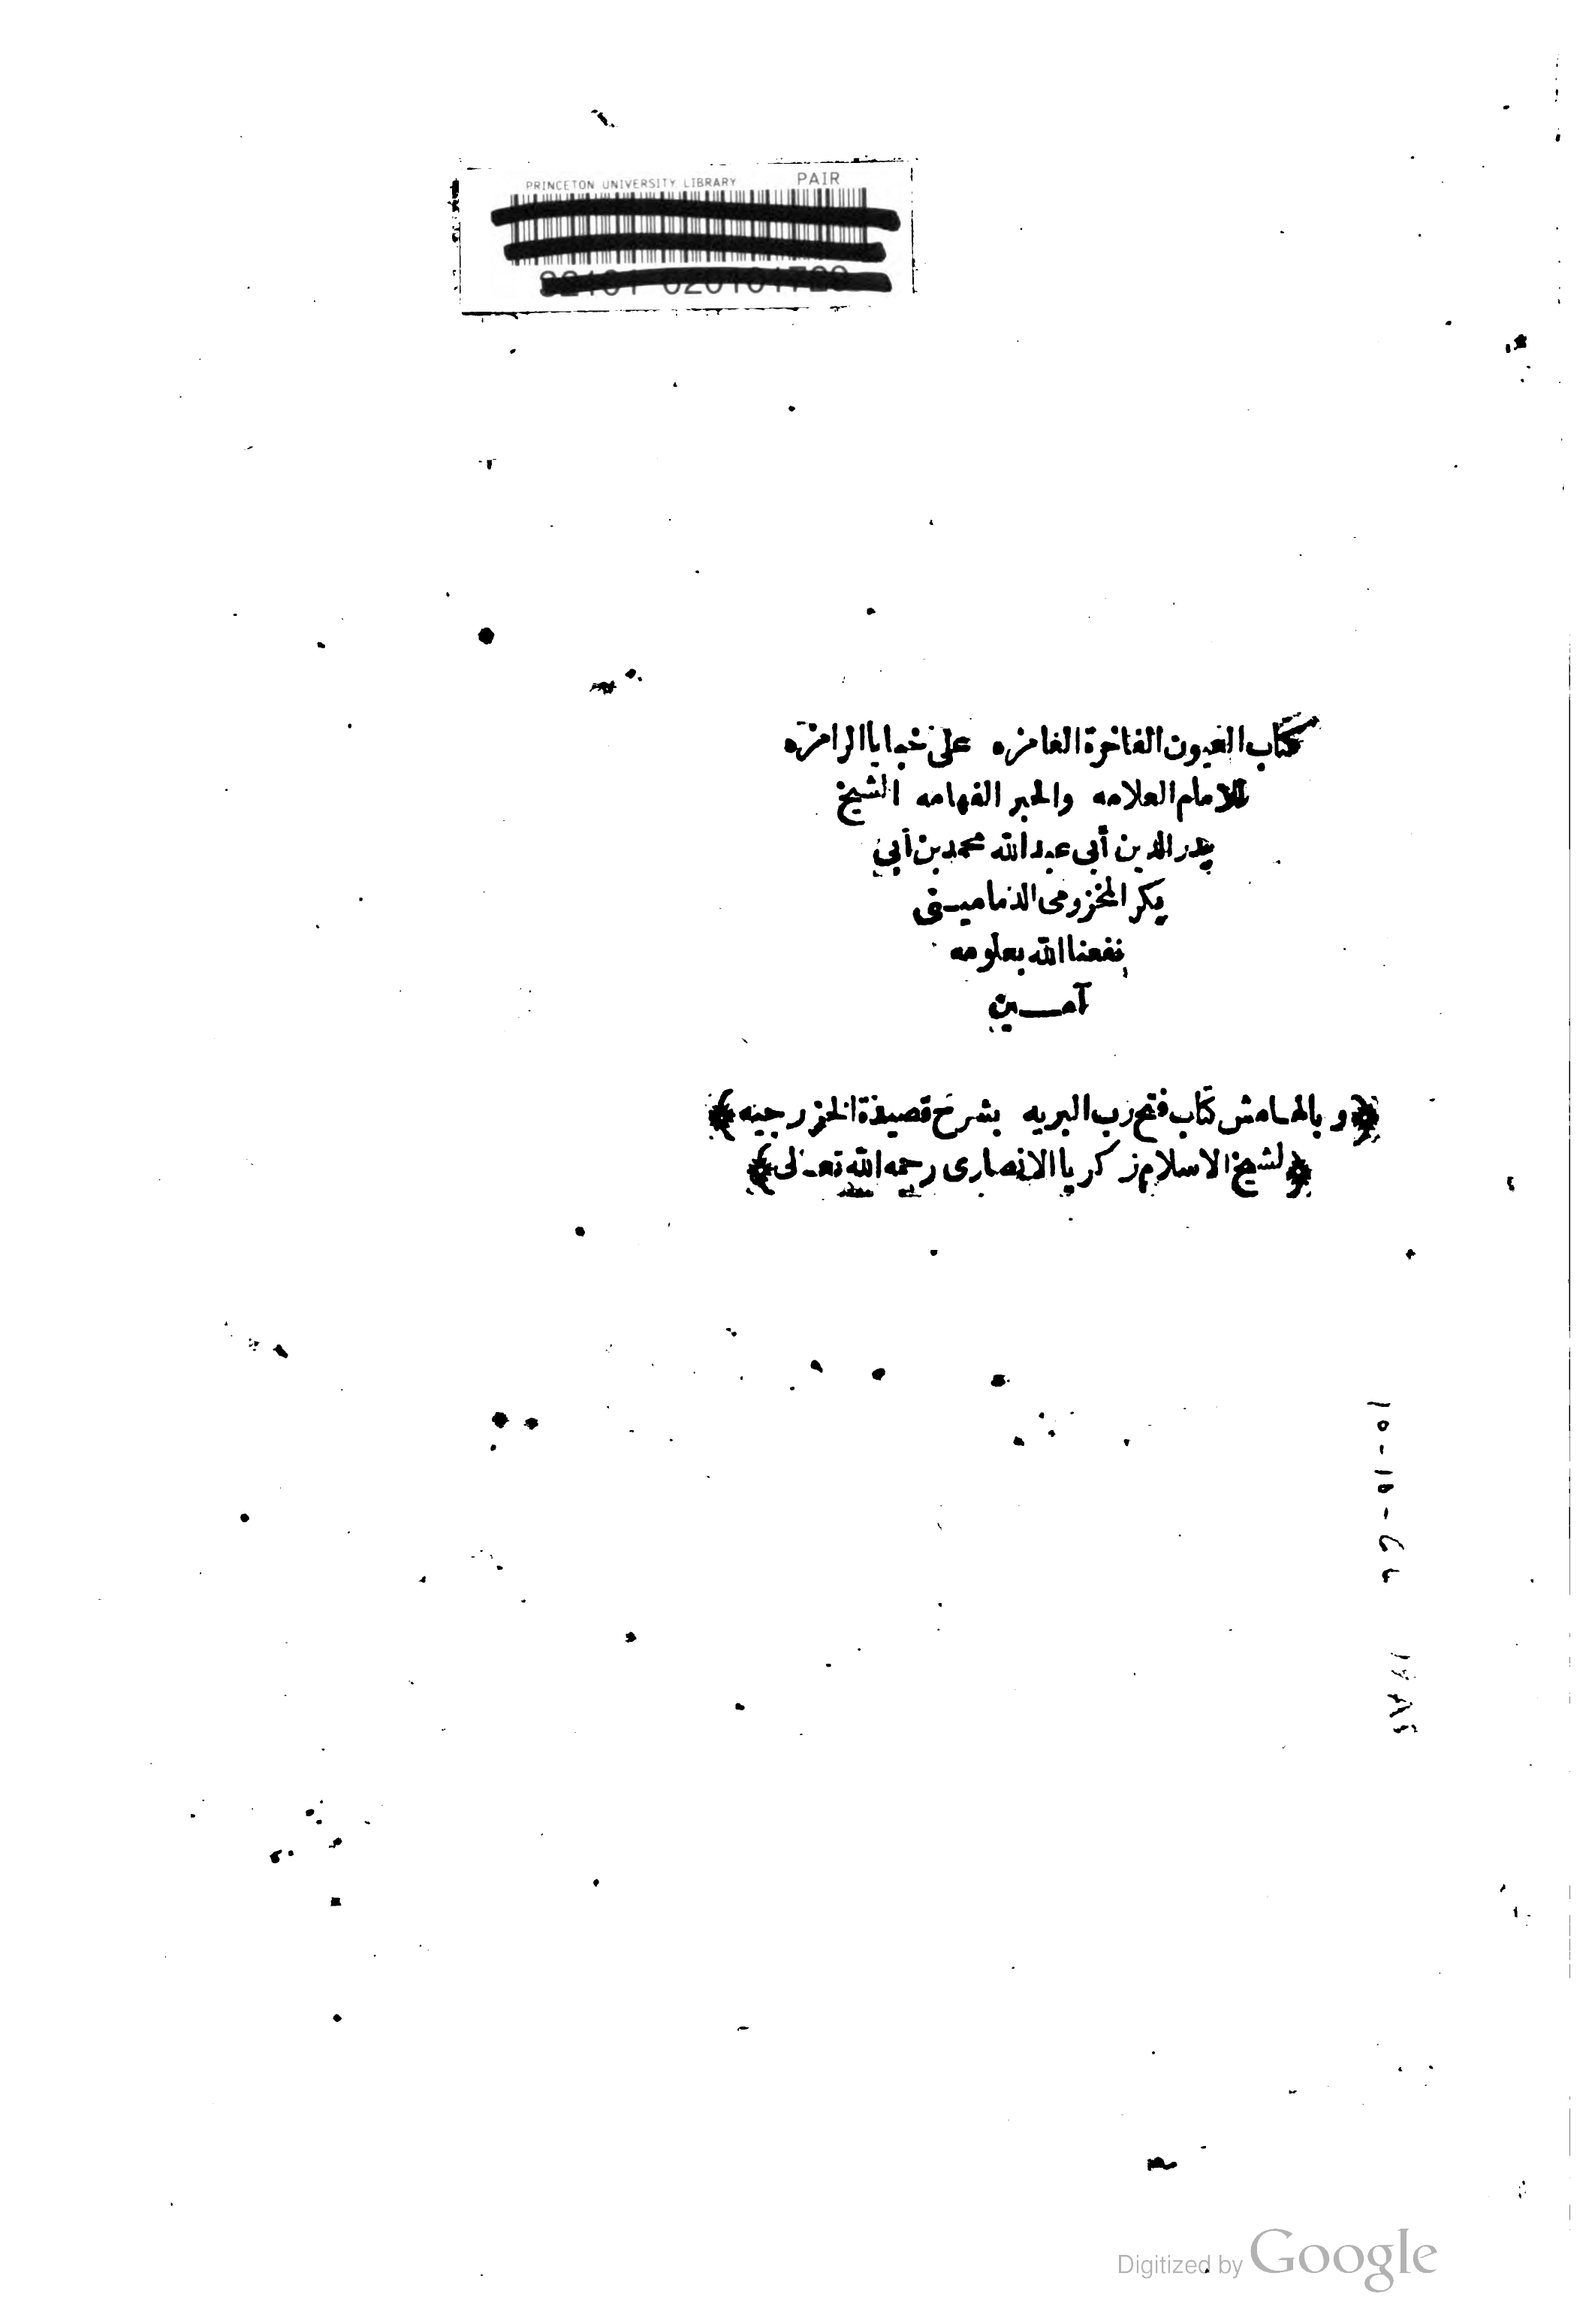 PRINCETON UNIVERSITY LIBRARY PAIR
كتاب العيون الفاخرة الغامزه على خبايا الرامزه
للامام العلامه والحبر الفهامه الشيخ
بدر الدين أبى عبد الله محمد بن أبى
بكر المخزومى الدمامينى
نفعنا الله بعلومه
آمــين
﴿وبالهامش كتاب فتح رب البريه بشرح قصيدة الخزرجيه﴾
﴿لشيخ الاسلام زكريا الانصارى رحمه الله تعالى﴾
10-16-66
Digitized by Google